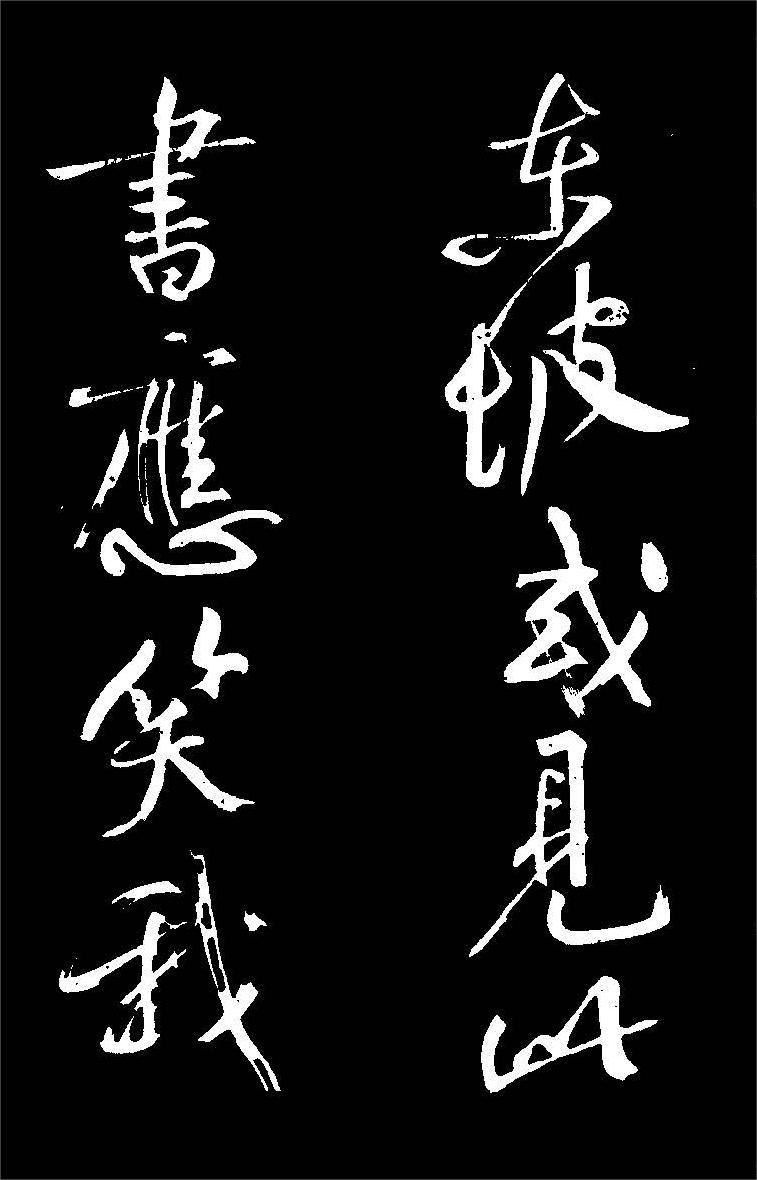 東坡或見此
書應笑我